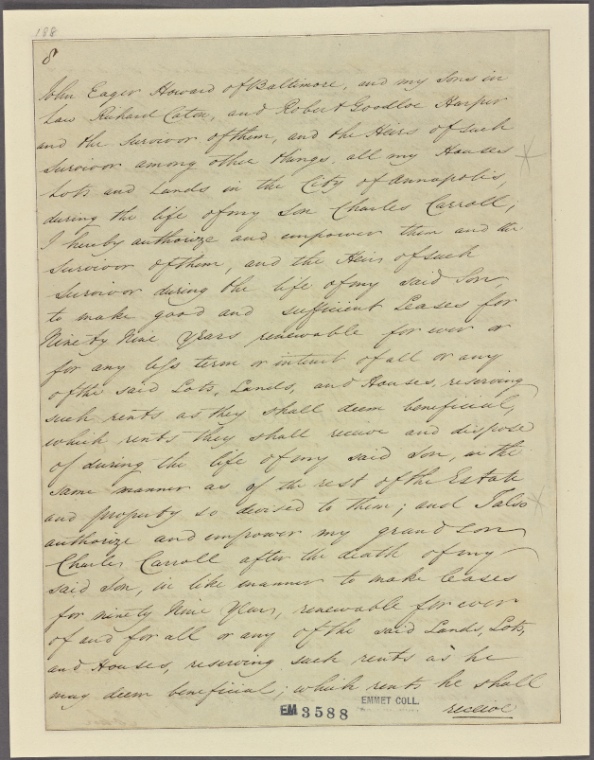 188
8
John Eager Howard of Baltimore, and my Sons in
Law Richard Caton, and Robert Goodloe Harper
and the Survivor of them, and the Heirs of such
Survivor among other things, all my Houses
Lots and Lands in the City of Annapolis,
during the life of my Son Charles Carroll,
I hereby authorize and empower them and the
Survivor of them, and the Heirs of such
Survivor during the life of my said Son,
to make good and sufficient Leases for
Ninety Nine Years renewable for ever or
for any less term or interest of all or any
of the said Lots, Lands, and Houses, reserving
such rents as they shall deem beneficial,
which rents they shall receive and dispose
of during the life of my said Son, in the
same manner as of the rest of the Estate
and property so devised to them; and I also
authorize and empower my grand son
Charles Carroll after the death of my
said Son, in like manner to make leases
for ninety Nine Years, renewable for ever
of and for all or any of the said Lands, Lots,
and Houses, reserving such rents as he
may deem beneficial; which rents he shall
receive
EM 3588
EMMET COLL.